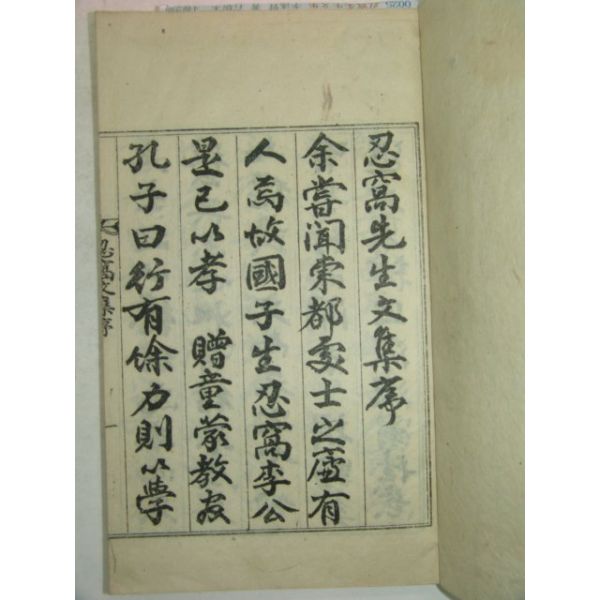 忍窩先生文集序
余嘗聞東都處士之廬有
人焉故國子生忍窩李公
是已以孝 贈童蒙教官
孔子曰行有餘力則以學
忍窩文集序